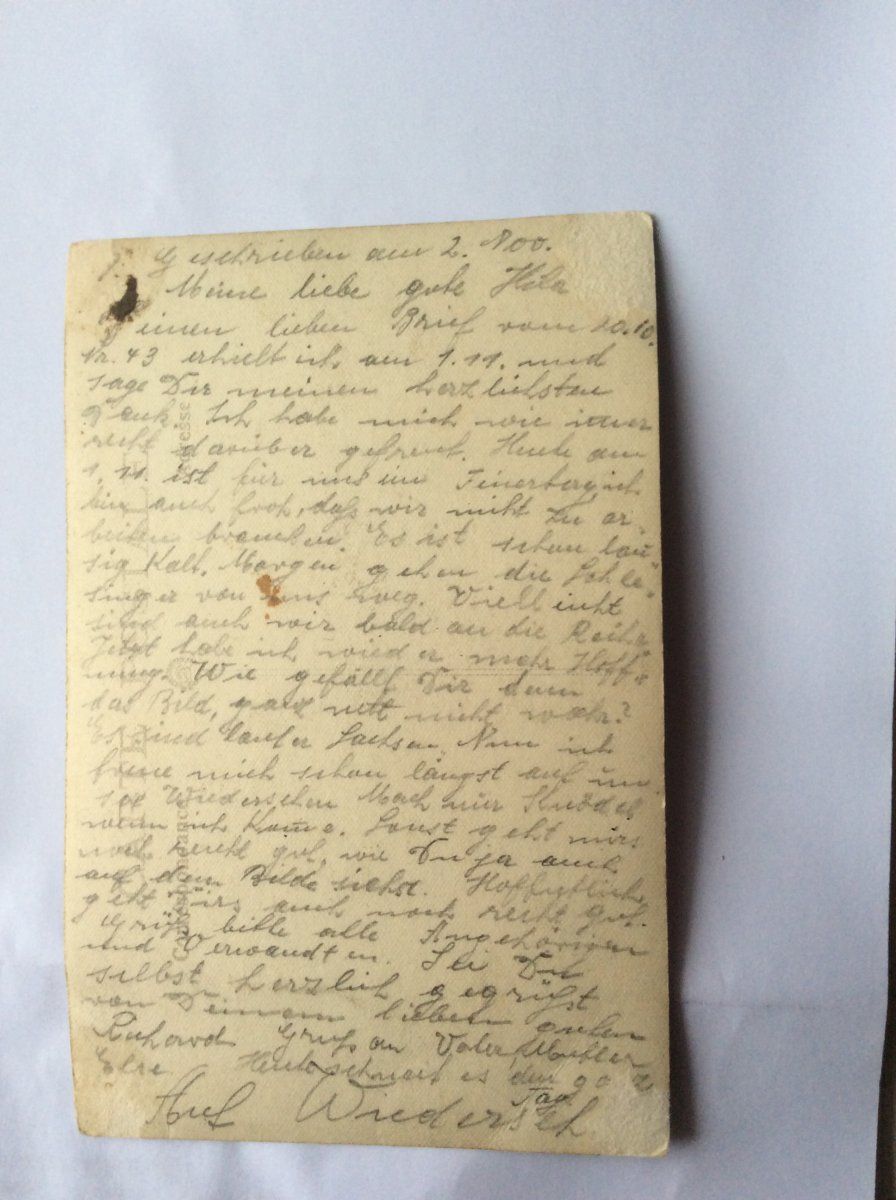 Geschrieben am 2. Nov.
Meine liebe gute
einen lieben Brief vom 20.10.
Nr. 43 erhielt ich am 1.11. und
sage Dir meinen herzlichsten
Dank. Ich habe mich wie immer
recht darüber gefreut. Heute am
1.11. ist hier uns ein Feiertag, ich
bin auch froh, daß wir nicht zu ar-
beiten brauchen. Es ist schon lau-
sig Kalt. Morgen gehen die Schle-
singer von uns weg. Vielleicht
sind auch wir bald an die Reihe
Jetzt habe ich wieder mehr Hoff-
nung. Wie gefällt Dir denn
das Bild, ganz nett nicht wahr?
Es sind lauter Sachsen. Nun ich
freue mich schon längst auf un
ser Wiedersehen Mach mir Knödel
wenn ich Kome. Sonst geht mirs
noch recht gut, wie Du ja auch
auf dem Bilde siehst. Hoffentlich
geht Dirs auch noch recht gut.
Grüß bitte alle Angehörigen
und Verwandten. Sei Du
selbst herzlich gegrüßt
von Deinem lieben guten
Richard Gruß an Vater, Mutter
Else Heute schneit es den ga
Tag
Auf Wiederseh
Correspondance
Adresse